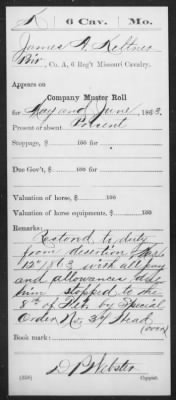 K | 6 Cav. | Mo.
James A. Keltner
Priv, Co. A, 6 Reg't Missouri Cavalry.
Appears on
Company Muster Roll
for May and June, 1863.
Present or absent Present
Stoppage, $ 100 for
Due Gov't, $ 100 for
Valuation of horse, $ 100
Valuation of horse equipments, $ 100
Remarks:
Restored to duty
from desertion
12" 1863 with all pay
and allowances
him stopped to the
8th of Feb. by Special
Order No 34 Head
(over)
Book mark:
D P Webster
(358) Copyist.